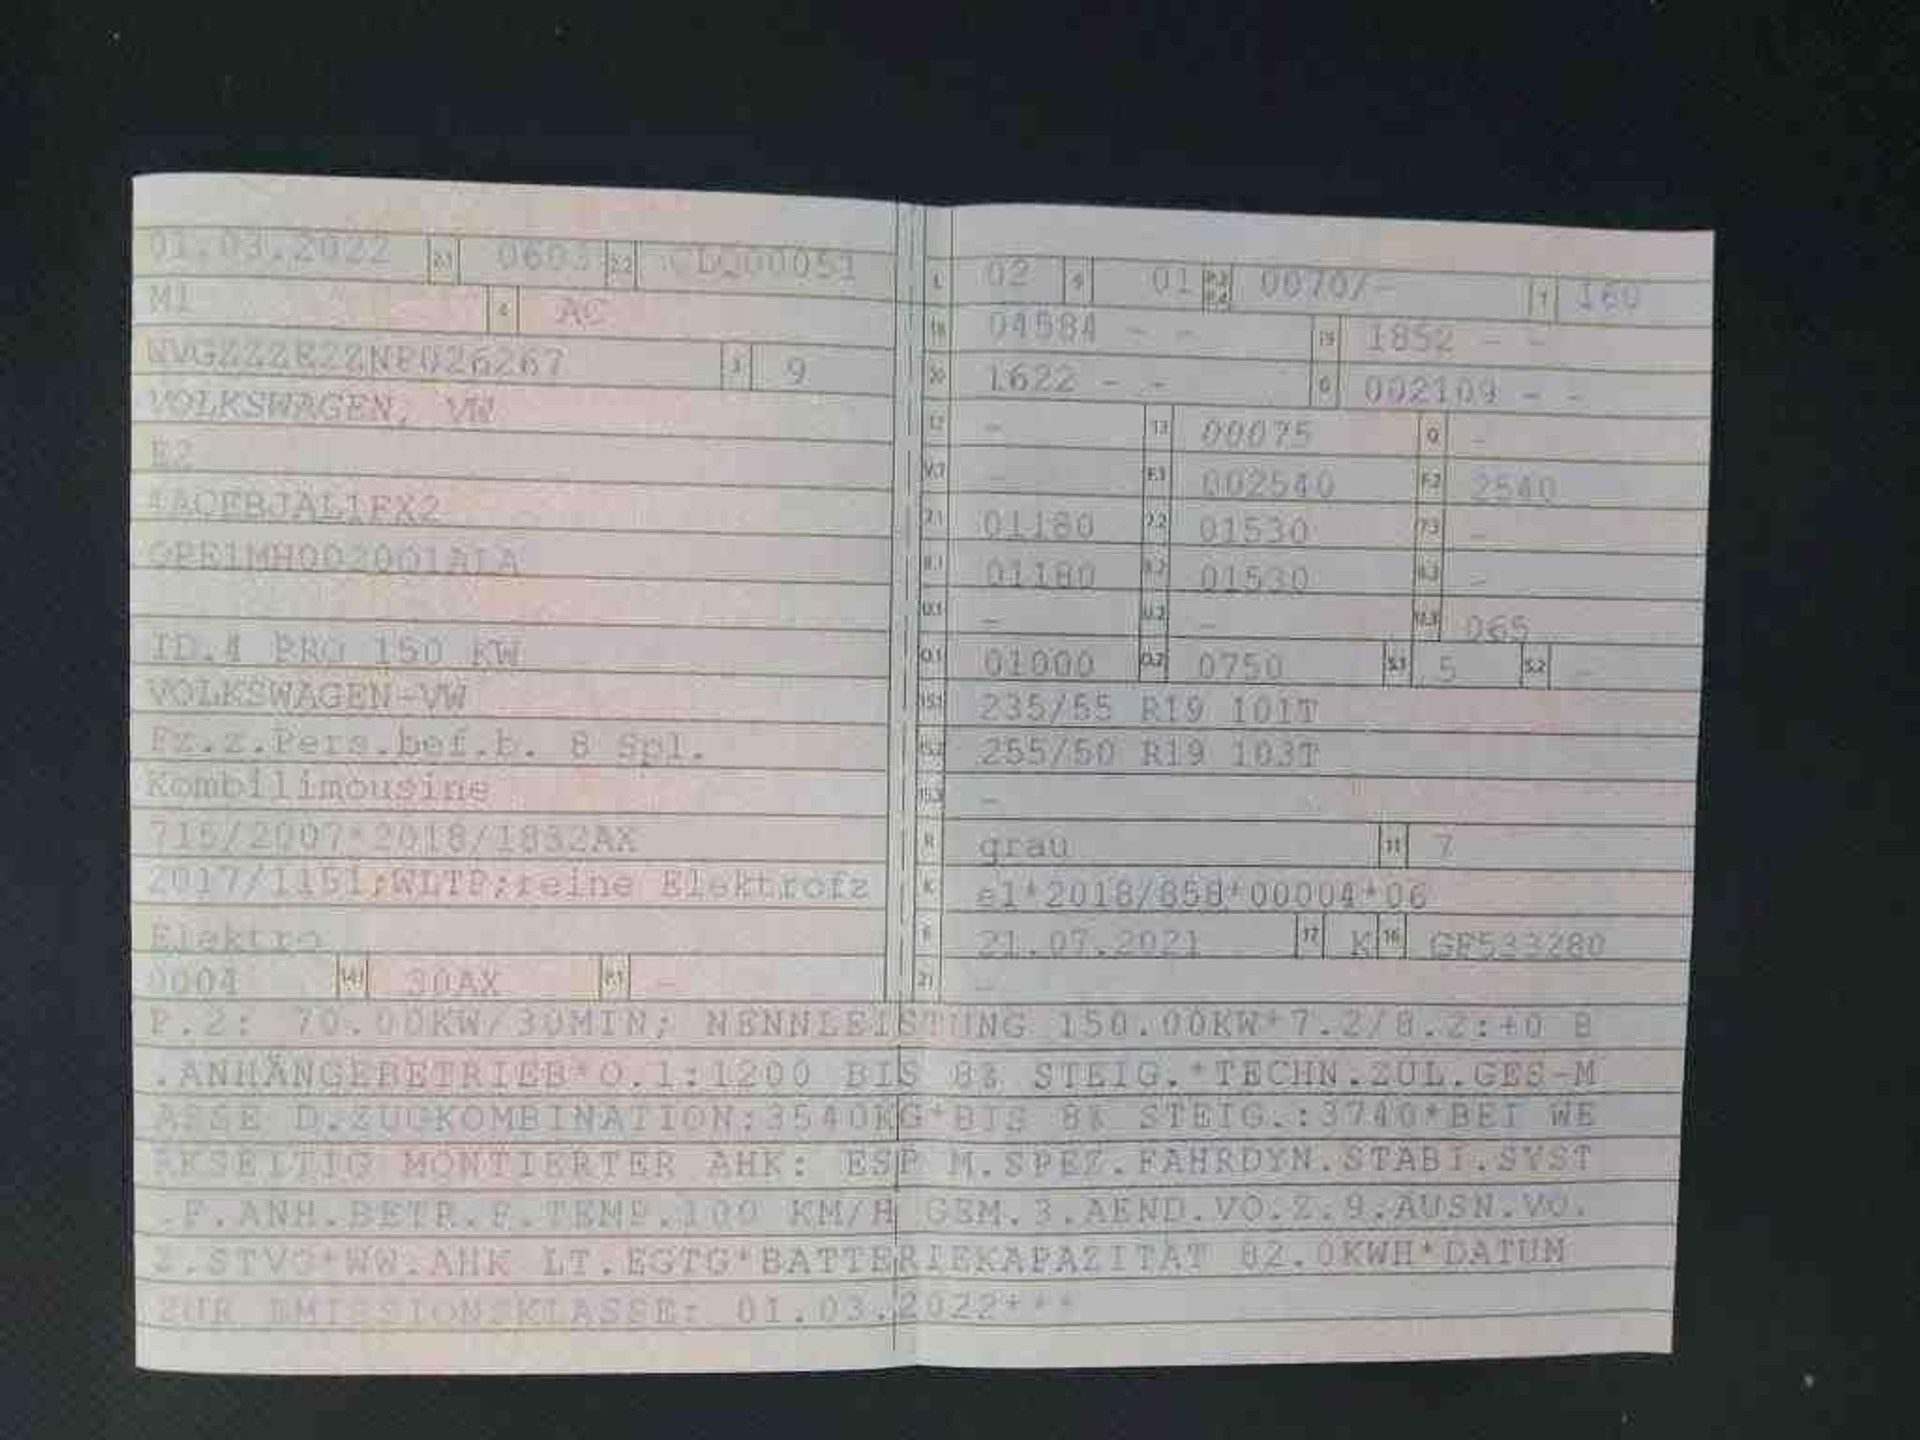 01.03.2022 2.1 0603 2.2 CLQ00051
M1 4 AC
WVGZZZE2ZNP026267 3 9
VOLKSWAGEN, VW
E2
ID.4 PRO 150 KW
VOLKSWAGEN-VW
Fz.z.Pers.bef.b. 8 Spl.
Kombilimousine
715/2007*2018/1832AX
2017/1151;WLTP;reine Elektrofz
Elektro
0004 14.1 30AX P.1 -
L 02 9 01 P.2 P.4 0070/- T 160
18 04584 - - 19 1852 - -
20 1622 - - G 002109 - -
12 - 13 00075 Q -
V.7 - F.1 002540 F.2 2540
7.1 01180 7.2 01530 7.3 -
8.1 01180 8.2 01530 8.3 -
U.1 - U.2 - U.3 065
O.1 01000 O.2 0750 S.1 5 S.2 -
15.1 235/55 R19 101T
15.2 255/50 R19 103T
15.3 -
R grau 11 7
K e1*2018/858*00004*06
6 21.07.2021 17 K 16 GF533280
21 -
P.2: 70.00KW/30MIN; NENNLEISTUNG 150.00KW*7.2/8.2:+0 B
.ANHÄNGEBETRIEB*O.1:1200 BIS 8% STEIG.*TECHN.ZUL.GES-M
ASSE D.ZUGKOMBINATION:3540KG*BIS 8% STEIG.:3740*BEI WE
RKSEITIG MONTIERTER AHK: ESP M.SPEZ.FAHRDYN.STABI.SYST
.F.ANH.BETR.F.TEMP.100 KM/H GEM.3.AEND.VO.Z.9.AUSN.VO.
Z.STVO*WW.AHK LT.EGTG*BATTERIEKAPAZITÄT 82.0KWH*DATUM
ZUR EMISSIONSKLASSE: 01.03.2022***